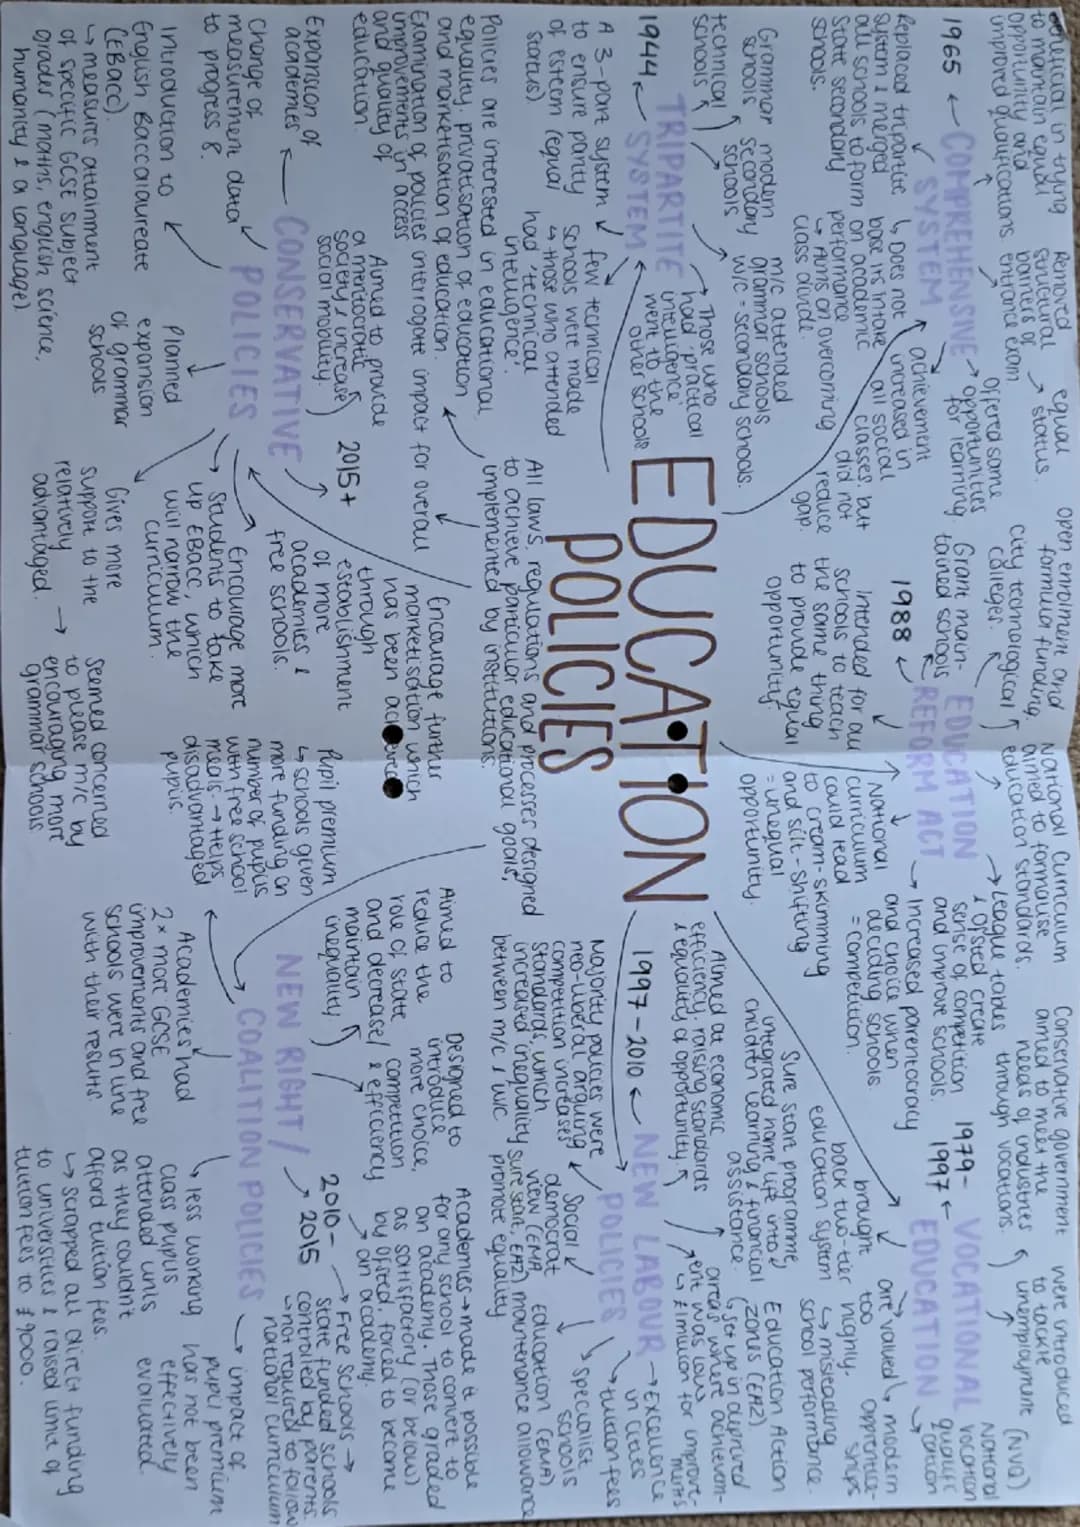 EDUCATION
POLICIES
All laws, regulations and processes designed
to achieve particular educational goals,
implemented by institutions.
Policies are interested in educational
equality, privatisation of education
and marketisation of education.
Examination of policies interrogate impact for overall
improvements in access
and quality of
education.
TRIPARTITE
SYSTEM
1944
A 3-part system
to ensure parity
of esteem (equal
status)
few technical
schools were made
↳ those who attended
had 'technical
intelligence'.
Those who
had 'practical
intelligence
went to the
other schools
Grammar
schools
modern
secondary
schools
technical
schools
m/c attended
grammar schools
w/c = secondary schools.
COMPREHENSIVE
SYSTEM
1965
Replaced tripartite
system & merged
all schools to form
state secondary
schools.
↳ Does not
base its intake
on academic
performance
↳ Aims on overcoming
class divide.
critical in trying
to maintain equal
opportunity and
improved qualifications.
Removed
structural
barriers of
entrance exam
equal
status.
Offered same
opportunities
for learning.
achievement
increased in
all social
classes, but
did not
reduce
gap.
EDUCATION
REFORM ACT
1988
open enrolment and
formula funding.
city technological
colleges.
Grant main-
tained schools
National Curriculum
aimed to formalise
education standards.
Intended for all
schools to teach
the same thing
to provide equal
opportunity
National
curriculum
could lead
to cream-skimming
and silt-shifting
= unequal
opportunity.
League tables
& Ofsted create
sense of competition
and improve schools.
Increased parentocracy
and choice when
deciding schools
= competition.
VOCATIONAL
EDUCATION
1979-
1997
Conservative government
aimed to meet the
needs of industries
through vocations.
were introduced
to tackle
unemployment
(NVQ)
National
vocation
qualific
cation
modern
apprentice-
ships
are valued
too
highly.
↳ misleading
school performance.
brought
back two-tier
education system
NEW LABOUR
POLICIES
1997-2010
Aimed at economic
efficiency, raising standards
& equality of opportunity.
Sure start programme
integrated home life into
children learning & financial
assistance.
Education Action
Zones (EAZ)
↳ set up in deprived
areas where achievem-
ent was low
↳ £1million for improve-
ments
Excellence
in cities
tuition fees
specialist
schools
Education
maintenance allowance
(EMA)
Social
democrat
view (EMA,
sure start, EAZ)
promote equality
Majority policies were
neo-liberal arguing
competition increases
standards, which
increased inequality
between m/c & w/c.
CONSERVATIVE
POLICIES
2015+
Expansion of
academies
Change of
measurement data
to progress 8.
Introduction to
English Baccalaureate
(EBacc).
↳ measures attainment
of specific GCSE subject
grades (maths, english science,
humanity & a language).
Aimed to provide
a meritocratic
society & increase
social mobility.
Planned
expansion
of grammar
schools
Gives more
support to the
relatively
advantaged.
seemed concerned
to please m/c by
encouraging more
grammar schools
Encourage more
Students to take
up EBacc, which
will narrow the
curriculum.
Encourage further
marketisation which
has been achieved
through
establishment
of more
academies &
free schools.
NEW RIGHT/
COALITION POLICIES
2010-
2015
Aimed to
reduce the
role of state
and decrease
maintain
inequality
Designed to
introduce
more choice,
competition
& efficiency
Academies → made it possible
for any school to convert to
an academy. Those graded
as satisfactory (or below)
by Ofsted, forced to become
an academy.
Free schools →
state funded schools
controlled by parents.
↳ not required to follow
national curriculum
Pupil premium
↳ schools given
more funding on
number of pupils
with free school
meals. → Helps
disadvantaged
pupils.
impact of
pupil premium
has not been
effectively
evaluated.
Academies had
2x more GCSE
improvements and free
schools were in line
with their results.
less working
class pupils
attended unis
as they couldn't
afford tuition fees.
↳ scrapped all direct funding
to universities & raised limit of
tuition fees to £9000.